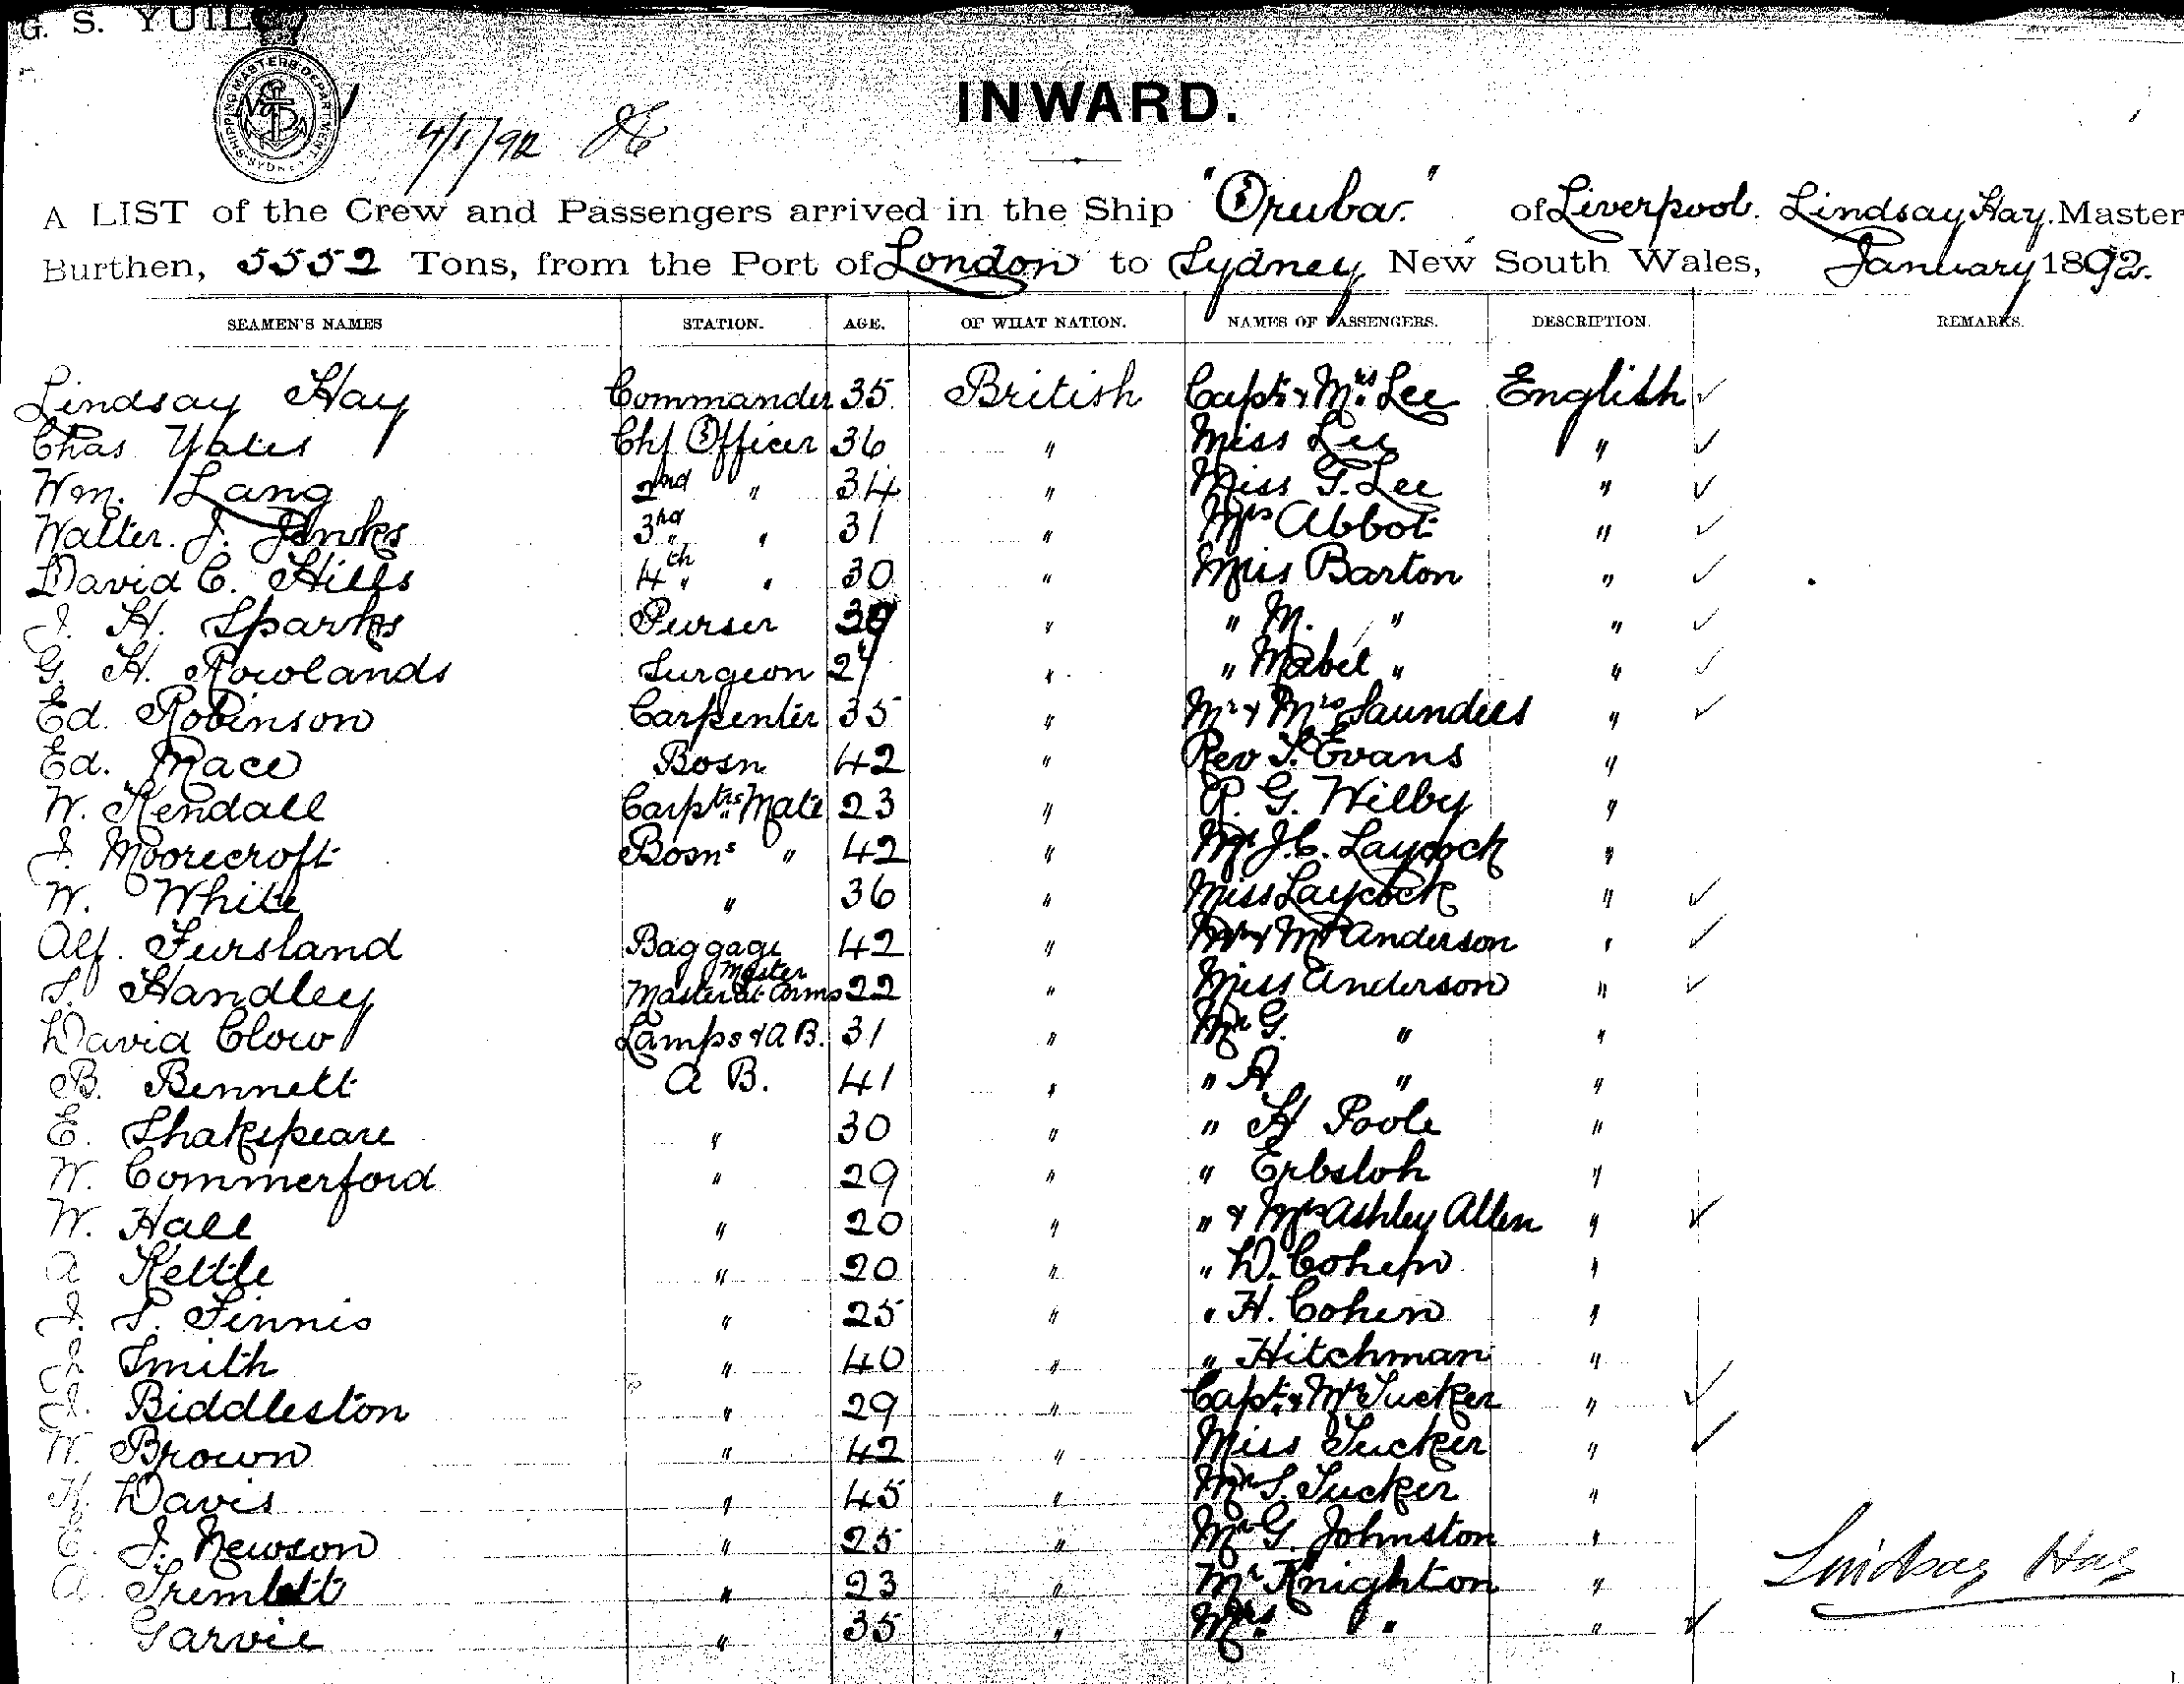 G. S. YUILL
SHIPPING MASTERS DEPARTMENT SYDNEY
4/1/92
INWARD.
A LIST of the Crew and Passengers arrived in the Ship "Oruba." of Liverpool. Lindsay Hay. Master
Burthen, 5552 Tons, from the Port of London to Sydney New South Wales, January 1892.
SEAMEN'S NAMES STATION. AGE. OF WHAT NATION. NAMES OF PASSENGERS. DESCRIPTION. REMARKS.
Lindsay Hay Commander 35 British Capt. & Mrs Lee English ✓
Chas Yates Chf Officer 36 " Miss Lee " ✓
Wm. Lang 2nd " 34 " Miss G. Lee " ✓
Walter. J. Jenks 3rd " 31 " Mrs Abbot " ✓
David C. Hills 4th " 30 " Miss Barton " ✓
J. H. Sparks Purser 30 " " M. " " ✓
G. H. Rowlands Surgeon 27 " " Mabel " " ✓
Ed. Robinson Carpenter 35 " Mr & Mrs Saunders " ✓
Ed. Mace Bosn 42 " Rev T. Evans "
W. Kendall Carptrs Mate 23 " R. G. Wilby "
J. Moorecroft Bosns " 42 " Mr J. C. Laycock "
W. White " 36 " Miss Laycock " ✓
Alf. Fursland Baggage Master 42 " Mr & Mrs Anderson " ✓
S. Handley Master at Arms 22 " Miss Anderson " ✓
David Clow Lamps & A B. 31 " Mr G. " "
B. Bennett A B. 41 " " A " "
E. Shakespeare " 30 " " H Poole "
W. Commerford " 29 " " Erbsloh "
W. Hall " 20 " " & Mrs Ashley Allen " ✓
A Kettle " 20 " " D. Cohen "
J. S. Finnis " 25 " " H. Cohen "
J. Smith " 40 " " Hitchman "
J. Biddleston " 29 " Capt. & Mrs Tucker " ✓
W. Brown " 42 " Miss Tucker " ✓
H. Davis " 45 " Mr S. Tucker "
E. J. Newson " 25 " Mr G. Johnston "
A. Tremlett " 23 " Mr Knighton "
Garvie " 35 " Mrs. " " ✓
Lindsay Hay